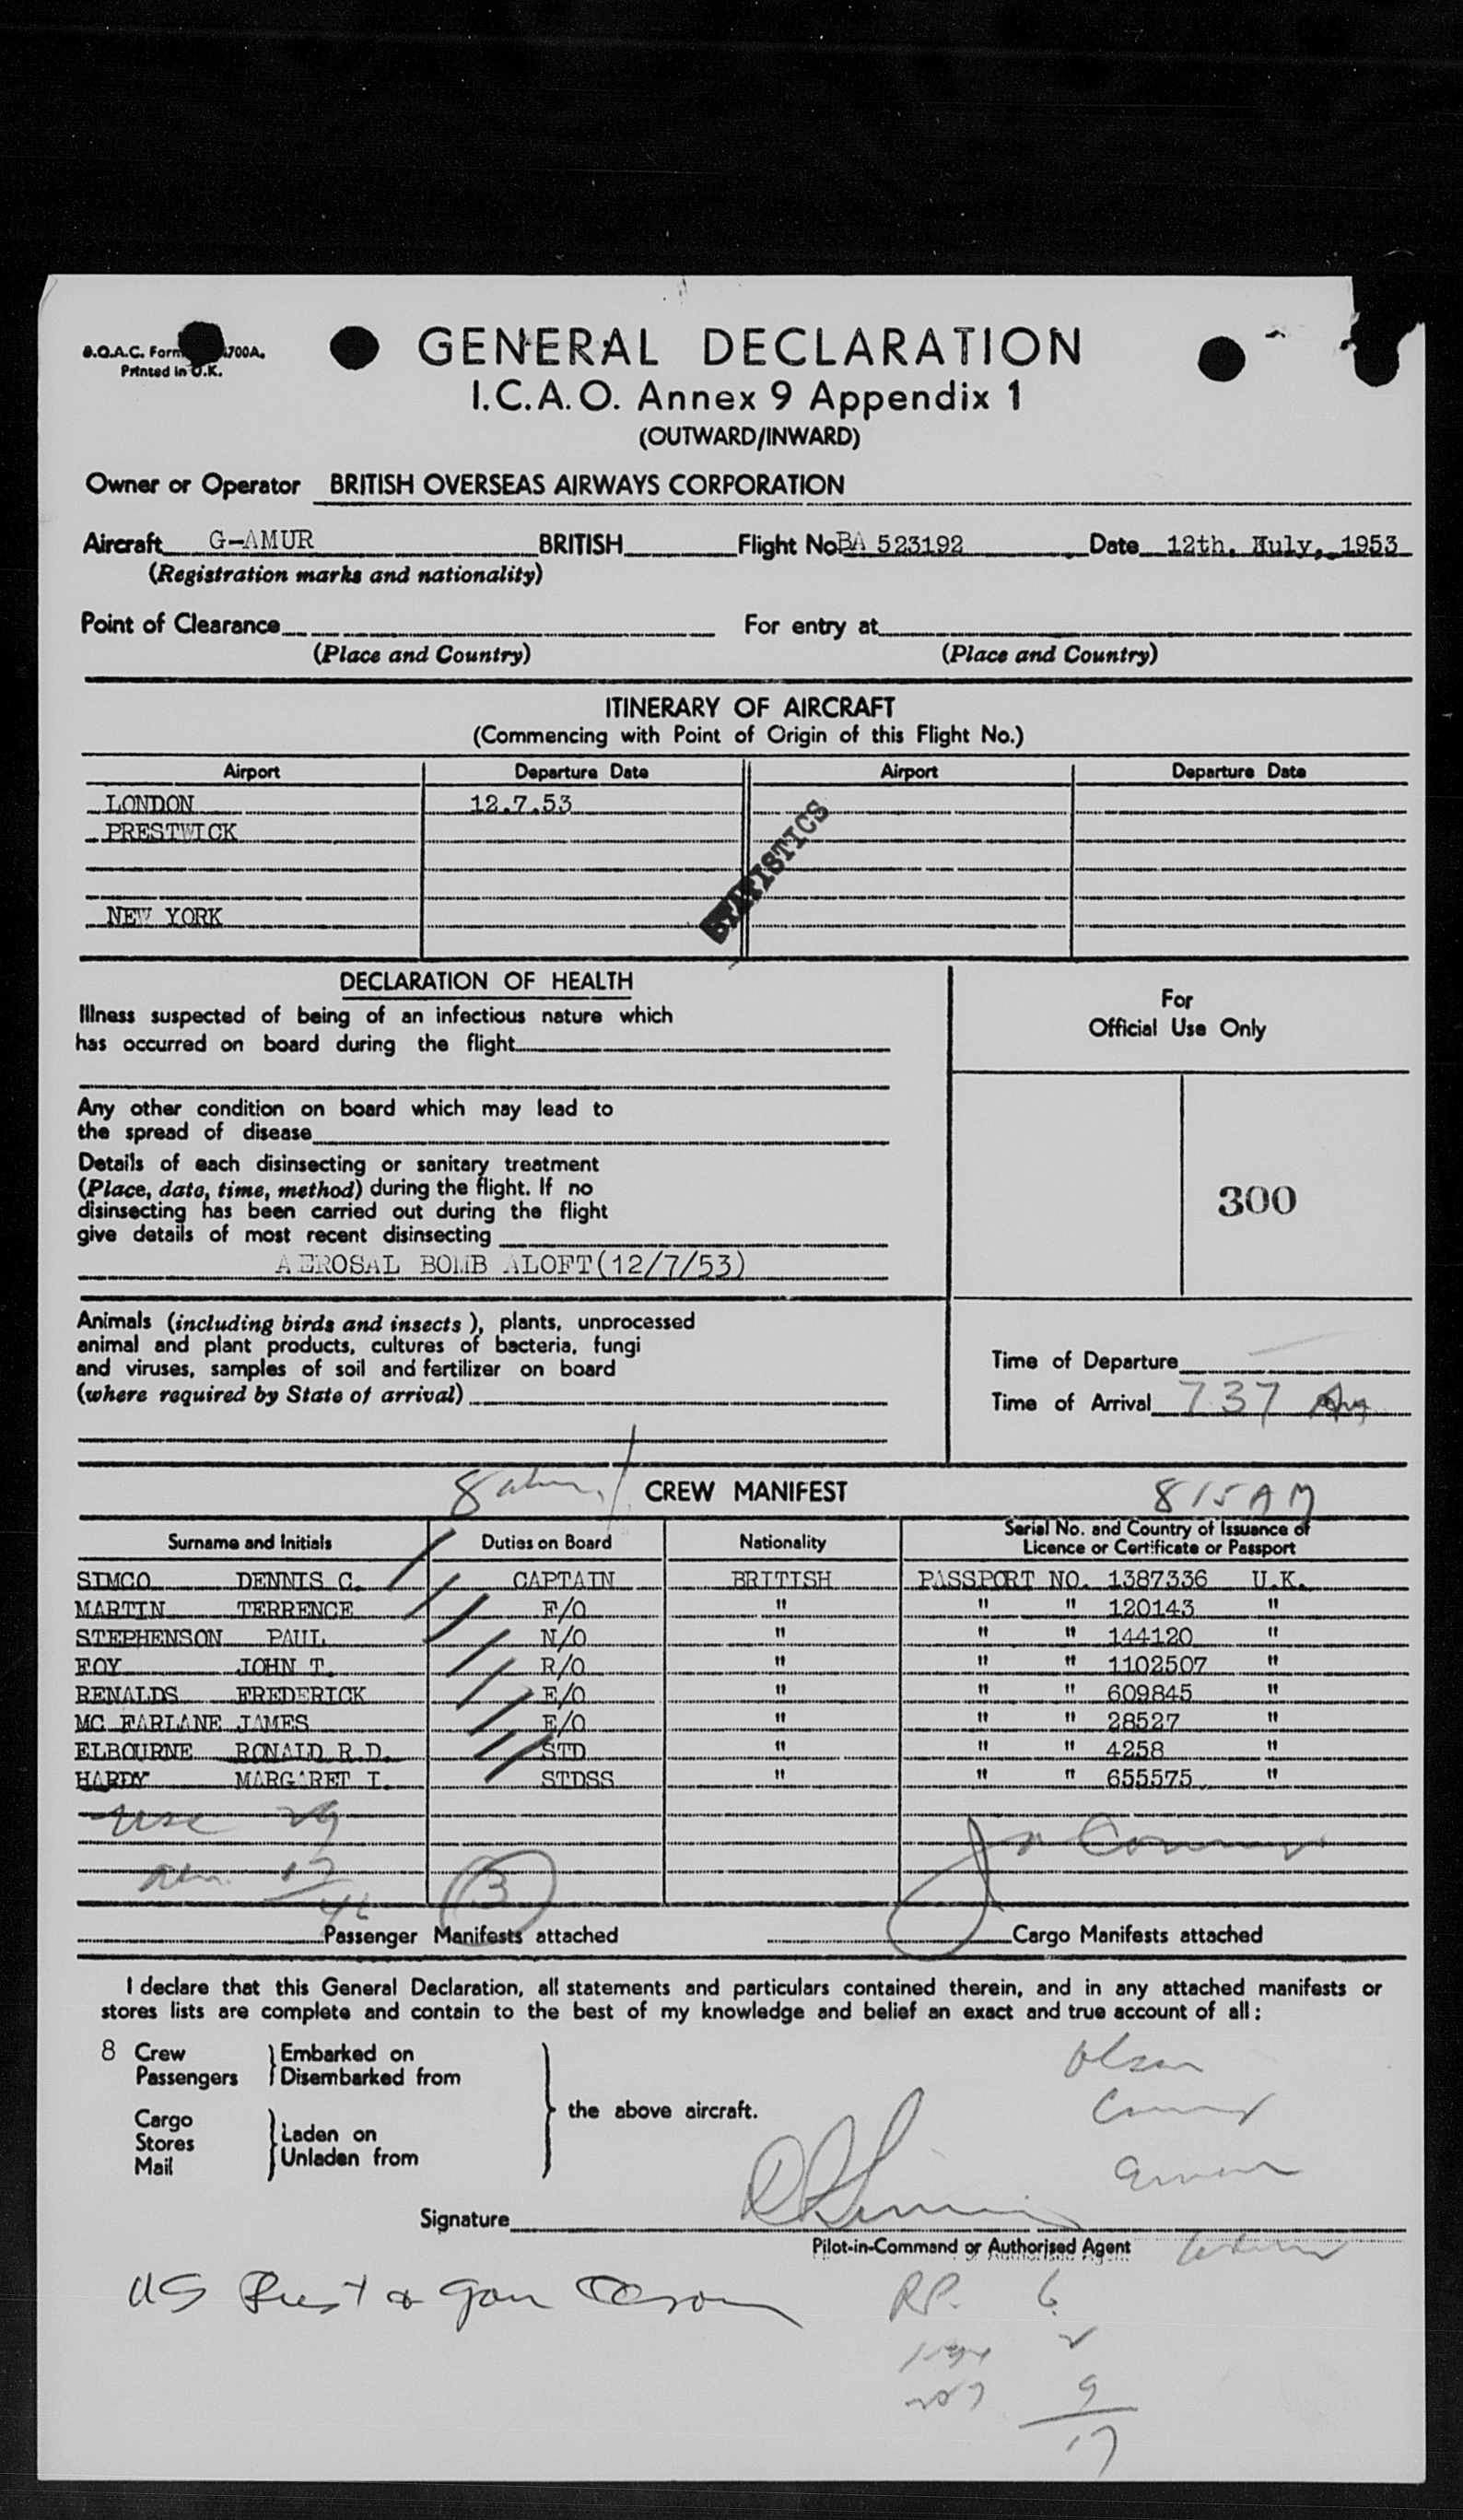 B.O.A.C. Form 700A.
Printed in U.K.
GENERAL DECLARATION
I.C.A.O. Annex 9 Appendix 1
(OUTWARD/INWARD)
Owner or Operator BRITISH OVERSEAS AIRWAYS CORPORATION
Aircraft G-AMUR BRITISH Flight No BA 523192 Date 12th. July, 1953
(Registration marks and nationality)
Point of Clearance For entry at
(Place and Country) (Place and Country)
ITINERARY OF AIRCRAFT
(Commencing with Point of Origin of this Flight No.)
Airport Departure Date Airport Departure Date
LONDON 12.7.53
PRESTWICK
NEW YORK
STATISTICS
DECLARATION OF HEALTH
Illness suspected of being of an infectious nature which
has occurred on board during the flight
Any other condition on board which may lead to
the spread of disease
Details of each disinsecting or sanitary treatment
(Place, date, time, method) during the flight. If no
disinsecting has been carried out during the flight
give details of most recent disinsecting
AEROSAL BOMB ALOFT(12/7/53)
For
Official Use Only
300
Animals (including birds and insects), plants, unprocessed
animal and plant products, cultures of bacteria, fungi
and viruses, samples of soil and fertilizer on board
(where required by State of arrival)
Time of Departure
Time of Arrival 737 Am
8
CREW MANIFEST
815 AM
Surname and Initials Duties on Board Nationality Serial No. and Country of Issuance of
Licence or Certificate or Passport
SIMCO DENNIS C. CAPTAIN BRITISH PASSPORT NO. 1387336 U.K.
MARTIN TERRENCE F/O " " " 120143 "
STEPHENSON PAUL N/O " " " 144120 "
FOY JOHN T. R/O " " " 1102507 "
RENALDS FREDERICK E/O " " " 609845 "
MC FARLANE JAMES E/O " " " 28527 "
ELBOURNE RONALD R.D. STD " " " 4258 "
HARDY MARGARET I. STDSS " " " 655575 "
USC 29
17
46
3
Passenger Manifests attached Cargo Manifests attached
I declare that this General Declaration, all statements and particulars contained therein, and in any attached manifests or
stores lists are complete and contain to the best of my knowledge and belief an exact and true account of all:
8 Crew
Passengers
Embarked on
Disembarked from
Cargo
Stores
Mail
Laden on
Unladen from
the above aircraft.
Olsen
Signature
Pilot-in-Command or Authorised Agent
US
RP. 6
2
9
17